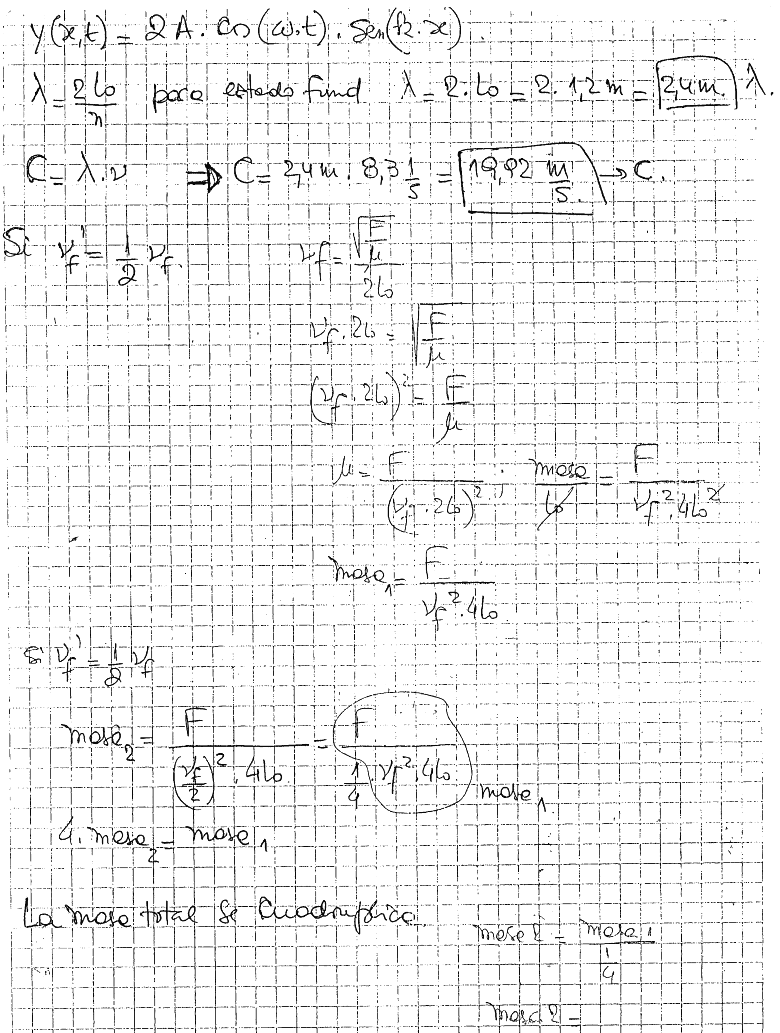 y(x,t) = 2A . Cos(ω.t) . Sen(k.x).
λ = 2Lo/n para estado Fund λ = 2.Lo = 2. 1,2 m = 2,4 m. λ.
C = λ.ν ⇒ C = 2,4 m. 8,3 1/s = 19,92 m/s. → C.
Si νf' = 1/2 νf. νf = √(F/μ) / 2Lo
νf . 2Lo = √(F/μ)
(νf . 2Lo)² = F/μ
μ = F/(νf . 2Lo)² , masa/Lo = F/(νf² . 4Lo²)
masa₁ = F/(νf² . 4Lo)
si νf' = 1/2 νf
masa₂ = F/((νf/2)² . 4Lo) = F/(1/4 . νf² . 4Lo) masa₁
4. masa₂ = masa₁
La masa total se Cuadruplica
masa 2 = masa 1 / (1/4)
masa 2 =